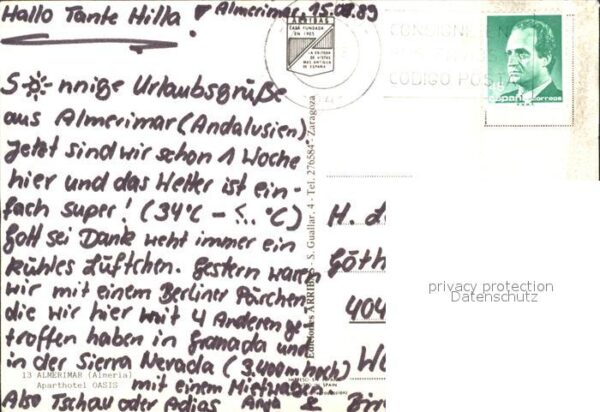 Hallo Tante Hilla! Almerimar, 15.08.89
Sonnige Urlaubsgrüße
aus Almerimar (Andalusien)
Jetzt sind wir schon 1 Woche
hier und das Wetter ist ein-
fach super! (34°C - <..°C)
Gott sei Dank weht immer ein
kühles Lüftchen. Gestern waren
wir mit einem Berliner Pärchen
die wir hier mit 4 Anderen ge-
troffen haben in Granada und
in der Sierra Nevada (3.400m hoch)
mit einem Mietwagen.
Also Tschau oder Adios Anja &
13 ALMERIMAR (Almeria)
Aparthotel OASIS
CASA FUNDADA
EN 1905
LA EDITORA
DE VISTAS
MAS ANTIGUA
DE ESPAÑA
Ediciones ARRIBAS - S. Guallar, 4 - Tel. 276584 - Zaragoza
SPAIN
CONSIGNE EN
CODIGO POSTA
España correos
H.
Göth
404
privacy protection
Datenschutz